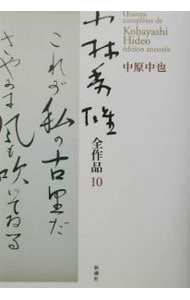 Œuvres
complètes de
Kobayashi
Hideo
édition annotée
中原中也
小林秀雄
全作品10
これが私の古里だ
さやかに風も吹いてゐる
新潮社